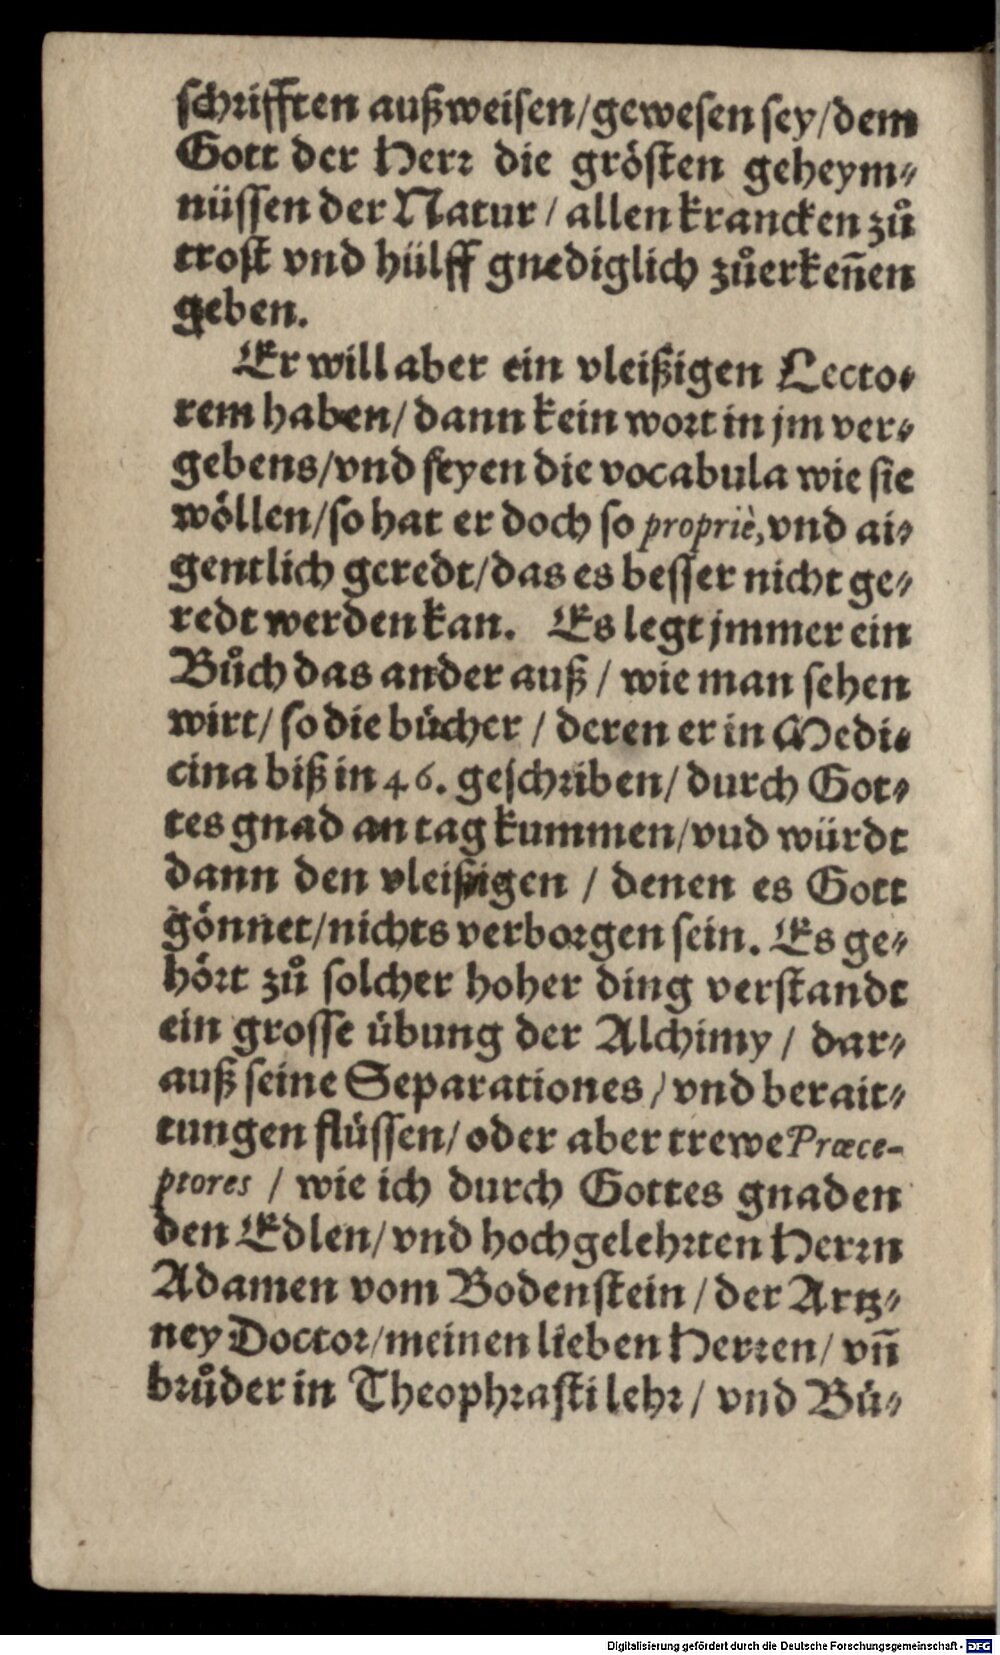 schrifften außweisen/gewesen sey/dem
Gott der Herr die grösten geheym⸗
nüssen der Natur / allen krancken zů
trost vnd hülff gnediglich zůerkeñen
geben.
Er will aber ein vleißigen Lecto⸗
rem haben/ dann kein wort in jm ver⸗
gebens/vnd seyen die vocabula wie sie
wöllen/so hat er doch so propriè, vnd ai⸗
gentlich geredt/das es besser nicht ge⸗
redt werden kan. Es legt jmmer ein
Bůch das ander auß / wie man sehen
wirt/ so die bücher / deren er in Medi⸗
cina biß in 46. geschriben/ durch Got⸗
tes gnad an tag kummen/vud würdt
dann den vleißigen / denen es Gott
gönnet/nichts verborgen sein. Es ge⸗
hört zů solcher hoher ding verstandt
ein grosse übung der Alchimy / dar⸗
auß seine Separationes / vnd berait⸗
tungen flüssen/ oder aber trewe Præce-
ptores / wie ich durch Gottes gnaden
den Edlen/ vnd hochgelehrten Herrn
Adamen vom Bodenstein / der Artz⸗
ney Doctor/meinen lieben Herren/ vñ
brůder in Theophrasti lehr / vnd Bü⸗
Digitalisierung gefördert durch die Deutsche Forschungsgemeinschaft - DFG